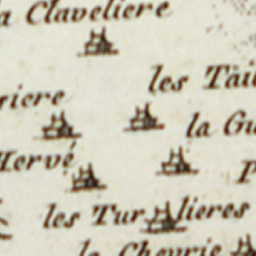 a Claveliere
les Tai
riere
la Gu
Hervé
P
les Tur lieres
la Chevrie